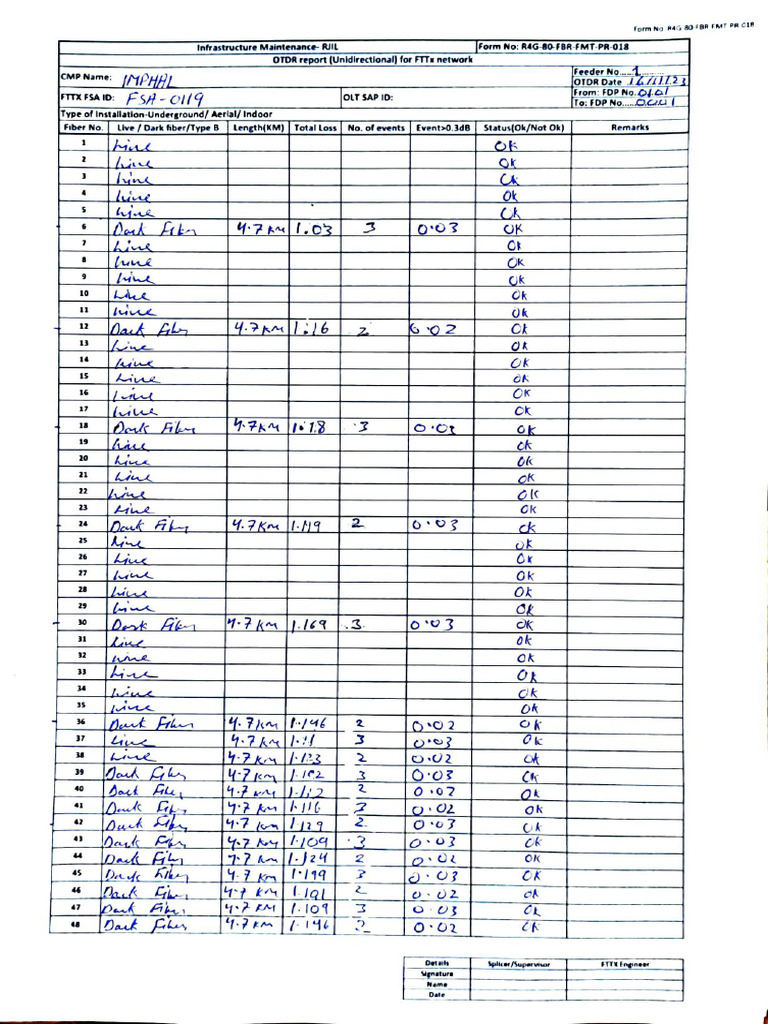 Form No: R4G-80-FBR-FMT-PR-018
Infrastructure Maintenance- RJIL Form No: R4G-80-FBR-FMT-PR-018
OTDR report (Unidirectional) for FTTx network
CMP Name: IMPHAL Feeder No.....1
OTDR Date 16/11/23
FTTX FSA ID: FSA-0119 OLT SAP ID: From: FDP No. 0101
To: FDP No.....0001
Type of Installation-Underground/ Aerial/ Indoor
Fiber No. Live / Dark fiber/Type B Length(KM) Total Loss No. of events Event>0.3dB Status(Ok/Not Ok) Remarks
1 Live OK
2 Live Ok
3 Live Ok
4 Live Ok
5 Live Ok
6 Dark Fiber 4.7KM 1.03 3 0.03 OK
7 Live Ok
8 Live OK
9 Live OK
10 Live Ok
11 Live OK
12 Dark Fiber 4.7KM 1.16 2 0.02 Ok
13 Live Ok
14 Live OK
15 Live OK
16 Live OK
17 Live Ok
18 Dark Fiber 4.7KM 1.18 3 0.03 OK
19 Live Ok
20 Live OK
21 Live OK
22 Live OK
23 Live OK
24 Dark Fiber 4.7KM 1.119 2 0.03 Ok
25 Live Ok
26 Live OK
27 Live OK
28 Live OK
29 Live Ok
30 Dark Fiber 4.7KM 1.169 3 0.03 OK
31 Live OK
32 Live OK
33 Live Ok
34 Live OK
35 Live OK
36 Dark Fiber 4.7KM 1.146 2 0.02 Ok
37 Live 4.7KM 1.11 3 0.03 OK
38 Live 4.7KM 2 0.02 OK
39 Dark Fiber 4.7KM 3 0.03 Ok
40 Dark Fiber 4.7KM 2 Ok
41 Dark Fiber 4.7KM 1.116 3 0.02 OK
42 Dark Fiber 4.7KM 1.129 2 0.03 Ok
43 Dark Fiber 4.7KM 1.109 3 0.03 Ok
44 Dark Fiber 4.7KM 1.124 2 0.02 OK
45 Dark Fiber 4.7KM 1.199 3 0.03 OK
46 Dark Fiber 4.7KM 1.101 2 0.02 OK
47 Dark Fiber 4.7KM 1.109 3 0.03 Ok
48 Dark Fiber 4.7KM 1.146 2 0.02 Ok
Details Splicer/Supervisor FTTX Engineer
Signature
Name
Date